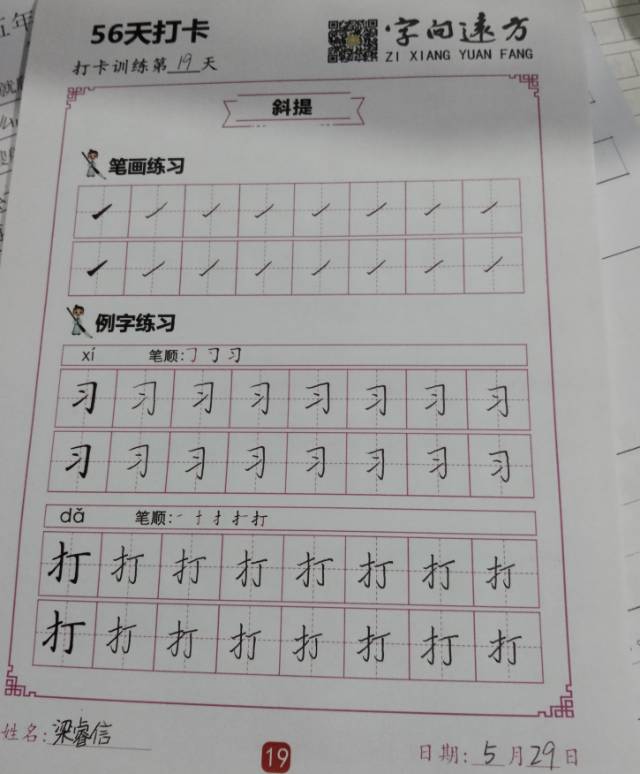 56天打卡
字向远方
ZI XIANG YUAN FANG
打卡训练第19天
斜提
笔画练习
例字练习
xí 笔顺:
习 习 习 习 习 习 习 习
习 习 习 习 习 习 习 习
dǎ 笔顺:
打 打 打 打 打 打 打 打
打 打 打 打 打 打 打 打
姓名:梁睿信
19
日期:5月29日